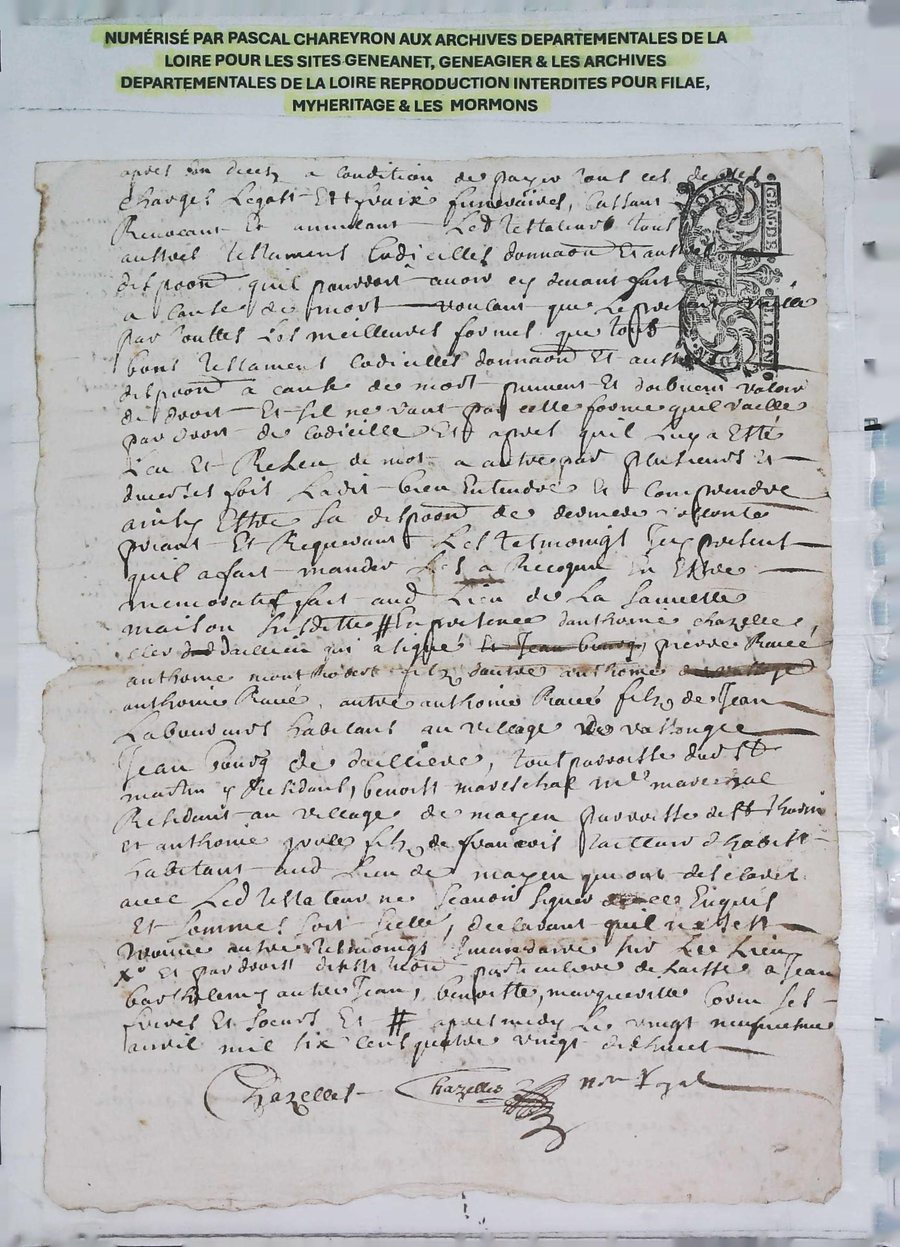 NUMÉRISÉ PAR PASCAL CHAREYRON AUX ARCHIVES DEPARTEMENTALES DE LA
LOIRE POUR LES SITES GENEANET, GENEAGIER & LES ARCHIVES
DEPARTEMENTALES DE LA LOIRE REPRODUCTION INTERDITES POUR FILAE,
MYHERITAGE & LES MORMONS
apres son decez a condition de payer tous ces
charges Legatz Et fraix funeraires, Cassant
Revocant Et annulant Led testateur tous
autres testament Codicilles donnaon Et autre
dispoon quil pourroit avoir cy devant fait
a cause de mort voulant que Le present vaille
par touttes Les meilleures formes que tous
bons testament Codicilles donnaon Et autre
dispoon a cause de mort peuvent Et doibvent valoir
de droit Et sil ne vaut par cette forme quil vaille
par droit de Codicille Et apres quil Luy a Esté
Leu Et Releu de mot a autre par plusieurs Et
diverses fois La dit bien Entendre Et Comprendre
ainsy Estre sa dispoon de derniere volonté
priant Et Requerant Les tesmoingts Icy present
quil a fait mander Les a Recognu Et Estre
memoratif fait aud Lieu de La
maison susditte # En presence danthoine chazelles,
clerc daillieu qui a signé et Jean bourg, pierre Racé
anthoine mont Robert filz dautre anthoine
anthoine Racé, autre anthoine Racé filz de Jean
Laboureurs habitans au village de
Jean bourg de, tout parroisse dud St
martin y Residant, benoist mareschal Me mareschal
Residant au village de mayen parroisse de St
et anthoine filz de francois tailleur dhabitz
habitant aud Lieu de mayen qui ont desclaré
avec Led testateur ne scavoir signer Enquis
Et sommes, declarant quil ne sest
trouvé autre tesmoingt sur Le Lieu
X° Et par droit particuliere de Laisse a Jean
barthelemy autre Jean, benoitte, margueritte ses
freres Et soeurs Et # apres midy Le vingt neufviesme
avril mil six Cens quatre vingt dixhuict
Chazelles Chazelles nore Royal
GEN. DE
LION